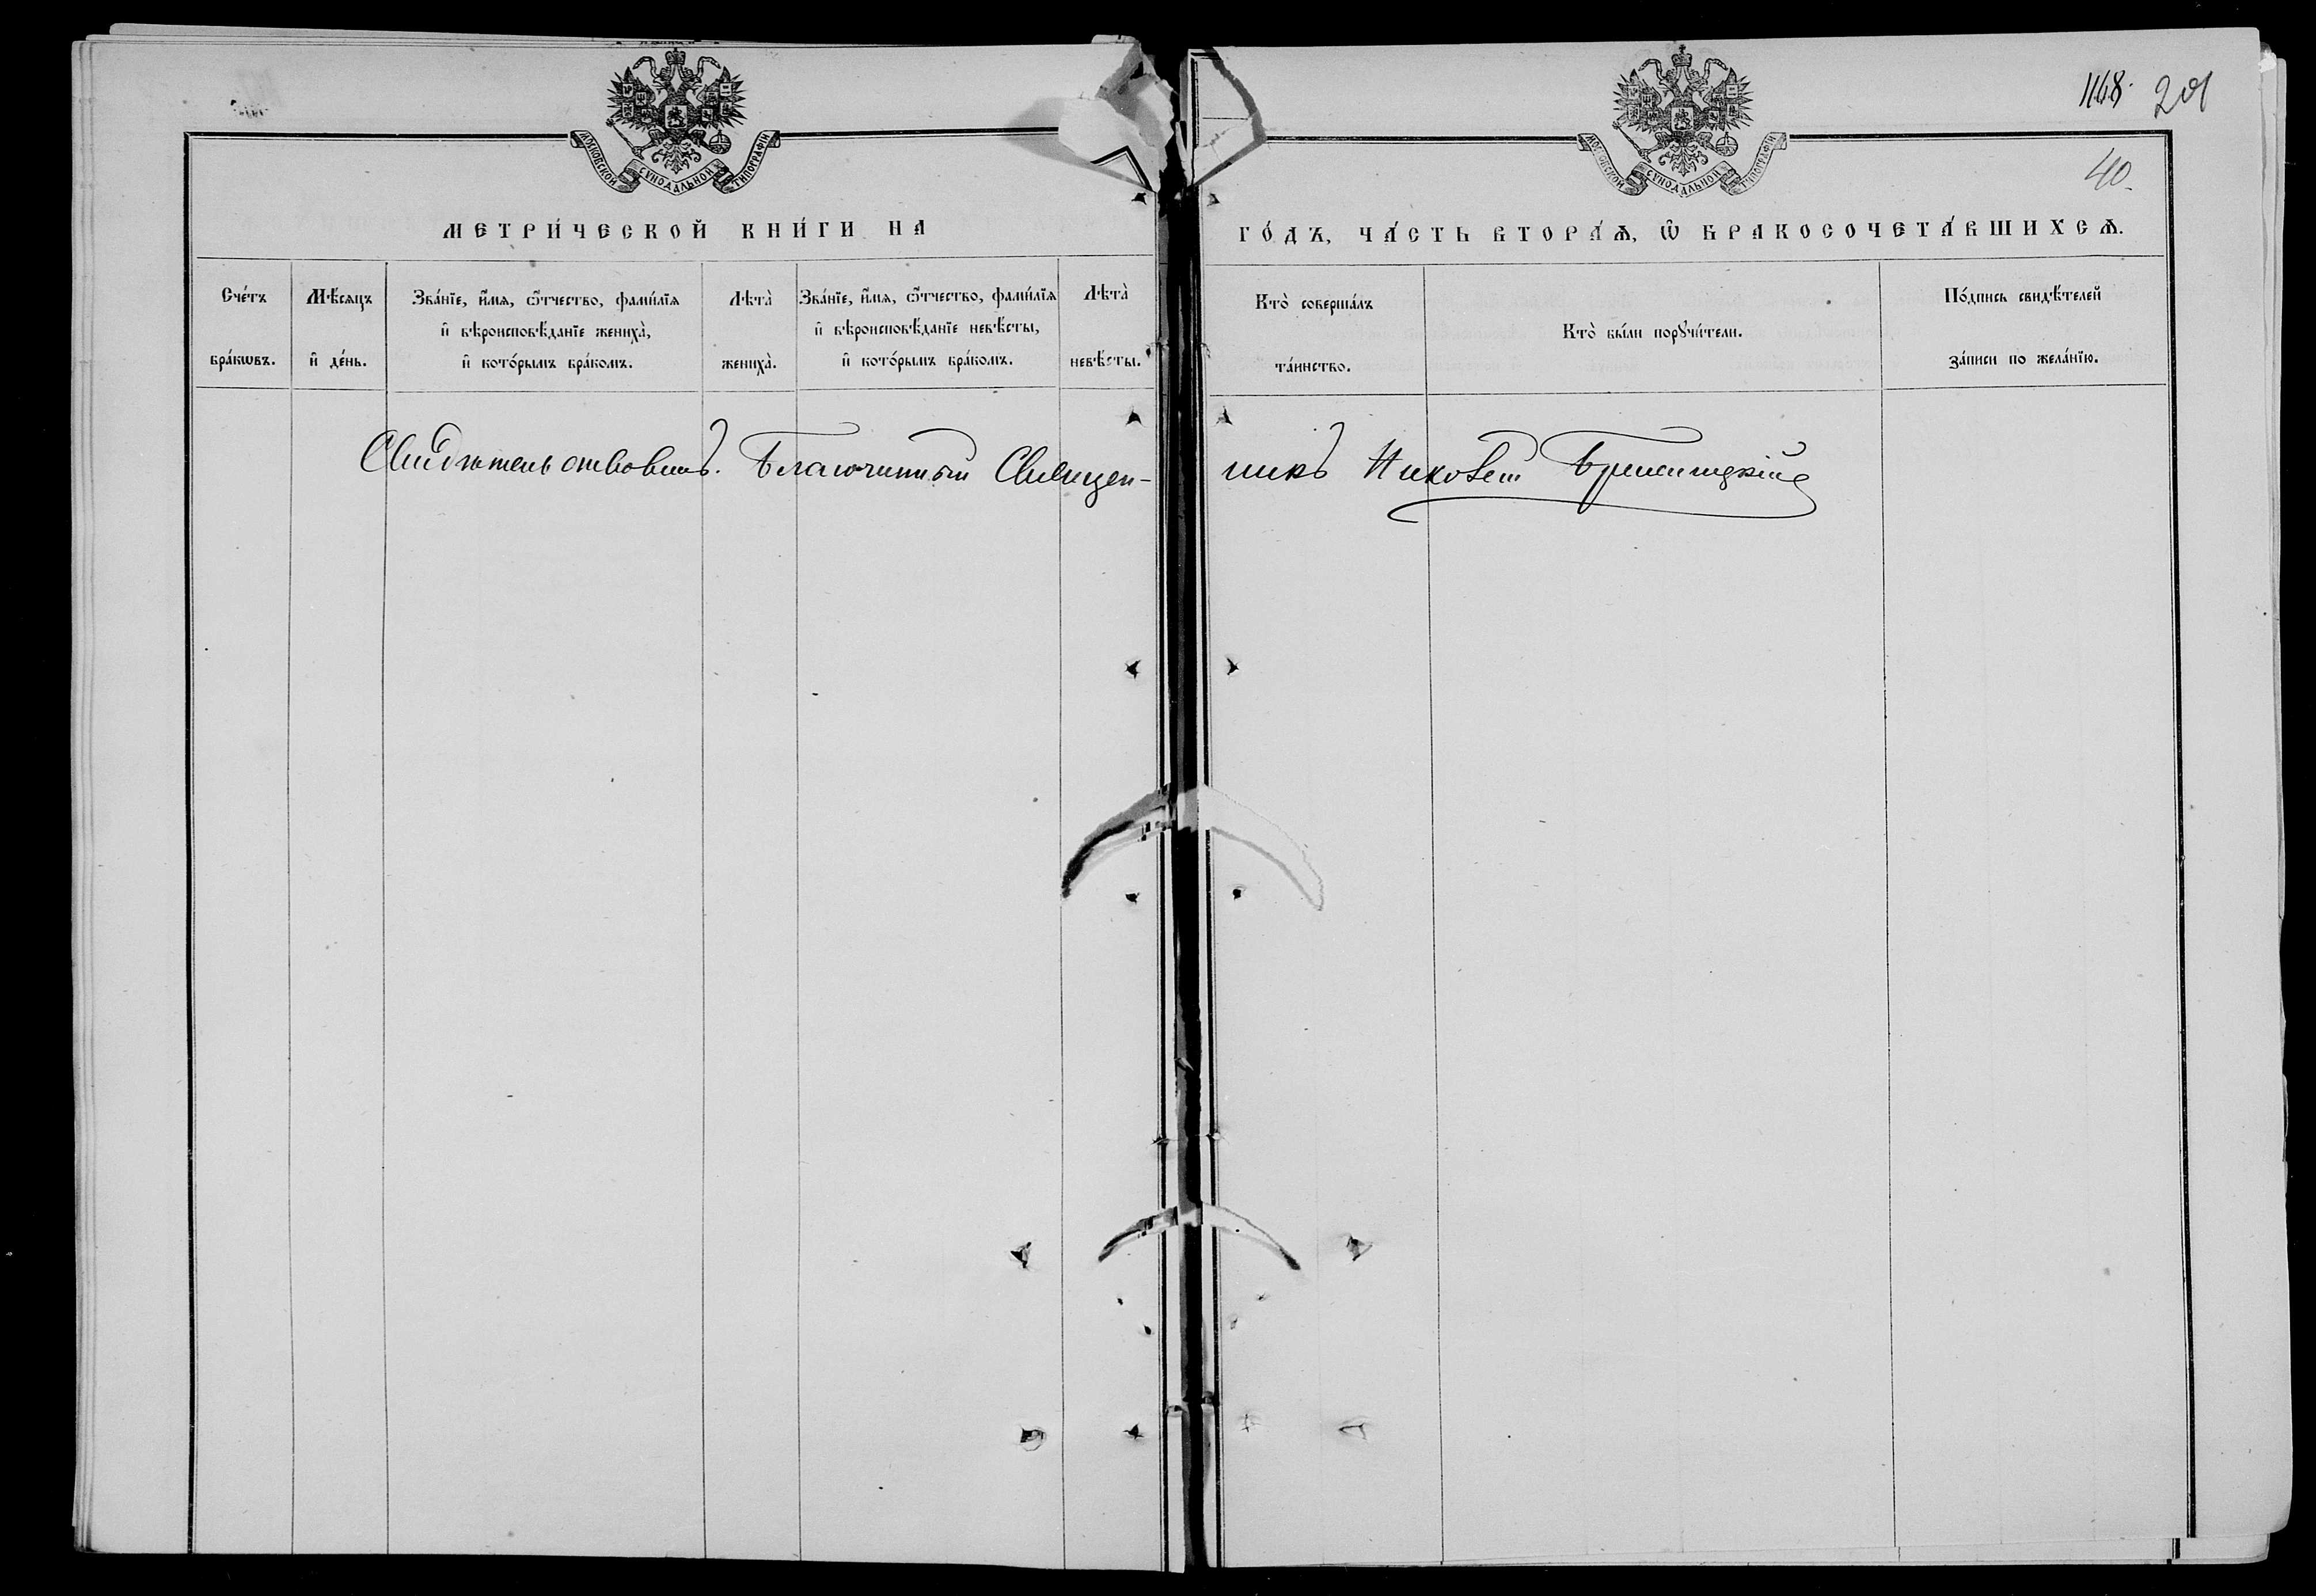 1168. 201
40.
МОСКОВСКОЙ СѴНОДАЛЬНОЙ ТИПОГРАФІИ
МОСКОВСКОЙ СѴНОДАЛЬНОЙ ТИПОГРАФІИ
МЕТРИ́ЧЕСКОЙ КНИ́ГИ НА
ГО́ДЪ, ЧА́СТЬ ВТОРА́Ѧ, Ѡ҆ БРАКОСОЧЕТА́ВШИХСѦ.
Сче́тъ
бра́кѡвъ.
Мѣ́сѧцъ
и҆ де́нь.
Зва́нїе, и҆́мѧ, ѻ҆́тчество, фами́лїѧ
и҆ вѣроисповѣ́данїе жениха̀,
и҆ кото́рымъ бра́комъ.
Лѣта̀
жениха̀.
Зва́нїе, и҆́мѧ, ѻ҆́тчество, фами́лїѧ
и҆ вѣроисповѣ́данїе невѣ́сты,
и҆ кото́рымъ бра́комъ.
Лѣта̀
невѣ́сты.
Кто̀ соверша́лъ
та́инство.
Кто̀ бы́ли порꙋчи́тели.
По́дпись свидѣ́телей
за́писи по жела́нїю.
Свидѣтельствовалъ. Благочинный Священ-
никъ